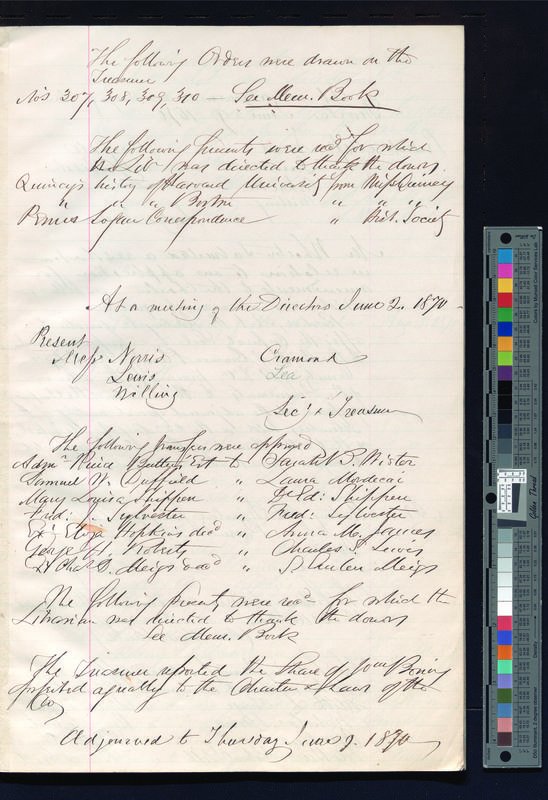 The following Orders were drawn on the
Treasurer
No's 307, 308, 309, 310 — See Mem. Book
The following presents were recd for which
the Lib was directed to thank the donors
Quincy's history of Harvard University from Miss Quincy
" " " Boston " " "
Penn & Logan Correspondence " Hist. Society
At a meeting of the Directors June 2. 1870
Present
Mess Norris Cramond
Lewis Lea
Willing
Secy & Treasurer
The following transfers were approved
Adm Butler's Est to Sarah B. Wister
Samuel W. Duffield " Laura Mordecai
Mary Louisa Shippen " Shippen
Fred: Sylvester " Fred: Sylvester
Ex Eliza Hopkins decd " Anna M. Jaques
George H. Roberts " Charles S. Lewis
Ex Chas D. Meigs decd " Meigs
The following presents were recd for which the
Librarian was directed to thank the donors
See Mem. Book
The Treasurer reported the Share of
forfeited agreeably to the Charter & Laws of the
Co
Adjourned to Thursday June 9. 1870